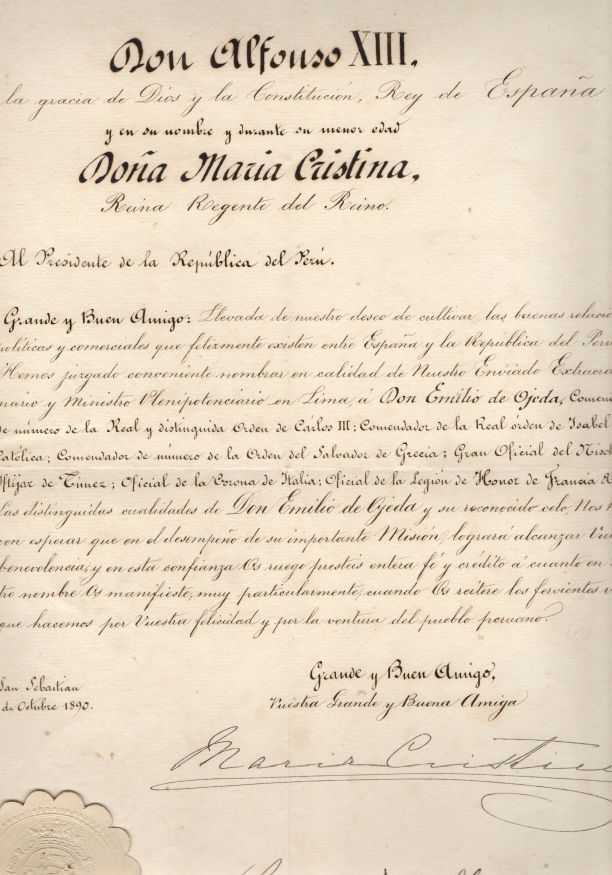 Don Alfonso XIII,
la gracia de Dios y la Constitución, Rey de España
y en su nombre y durante su menor edad
Doña Maria Cristina,
Reina Regente del Reino.
Al Presidente de la República del Perú.
Grande y Buen Amigo: Llevada de nuestro deseo de cultivar las buenas relacio
políticas y comerciales que felizmente existen entre España y la República del Perú
Hemos juzgado conveniente nombrar en calidad de Nuestro Enviado Extraord
nario y Ministro Plenipotenciario en Lima, á Don Emilio de Ojeda, Comend
de número de la Real y distinguida Orden de Carlos III; Comendador de la Real órden de Isabel
Católica; Comendador de número de la Orden del Salvador de Grecia; Gran Oficial del Nisch
Iftijar de Túnez; Oficial de la Corona de Italia; Oficial de la Legión de Honor de Francia
Las distinguidas cualidades de Don Emilio de Ojeda y su reconocido celo, Nos h
cen esperar que en el desempeño de su importante Misión, logrará alcanzar Vue
benevolencia, y en esta confianza Os ruego prestéis entera fé y crédito á cuanto en
tro nombre Os manifieste, muy particularmente, cuando Os reitere los fervientes v
que hacemos por Vuestra felicidad y por la ventura del pueblo peruano.
Grande y Buen Amigo,
San Sebastian
Vuestra Grande y Buena Amiga
de Octubre 1890.
Maria Cristina